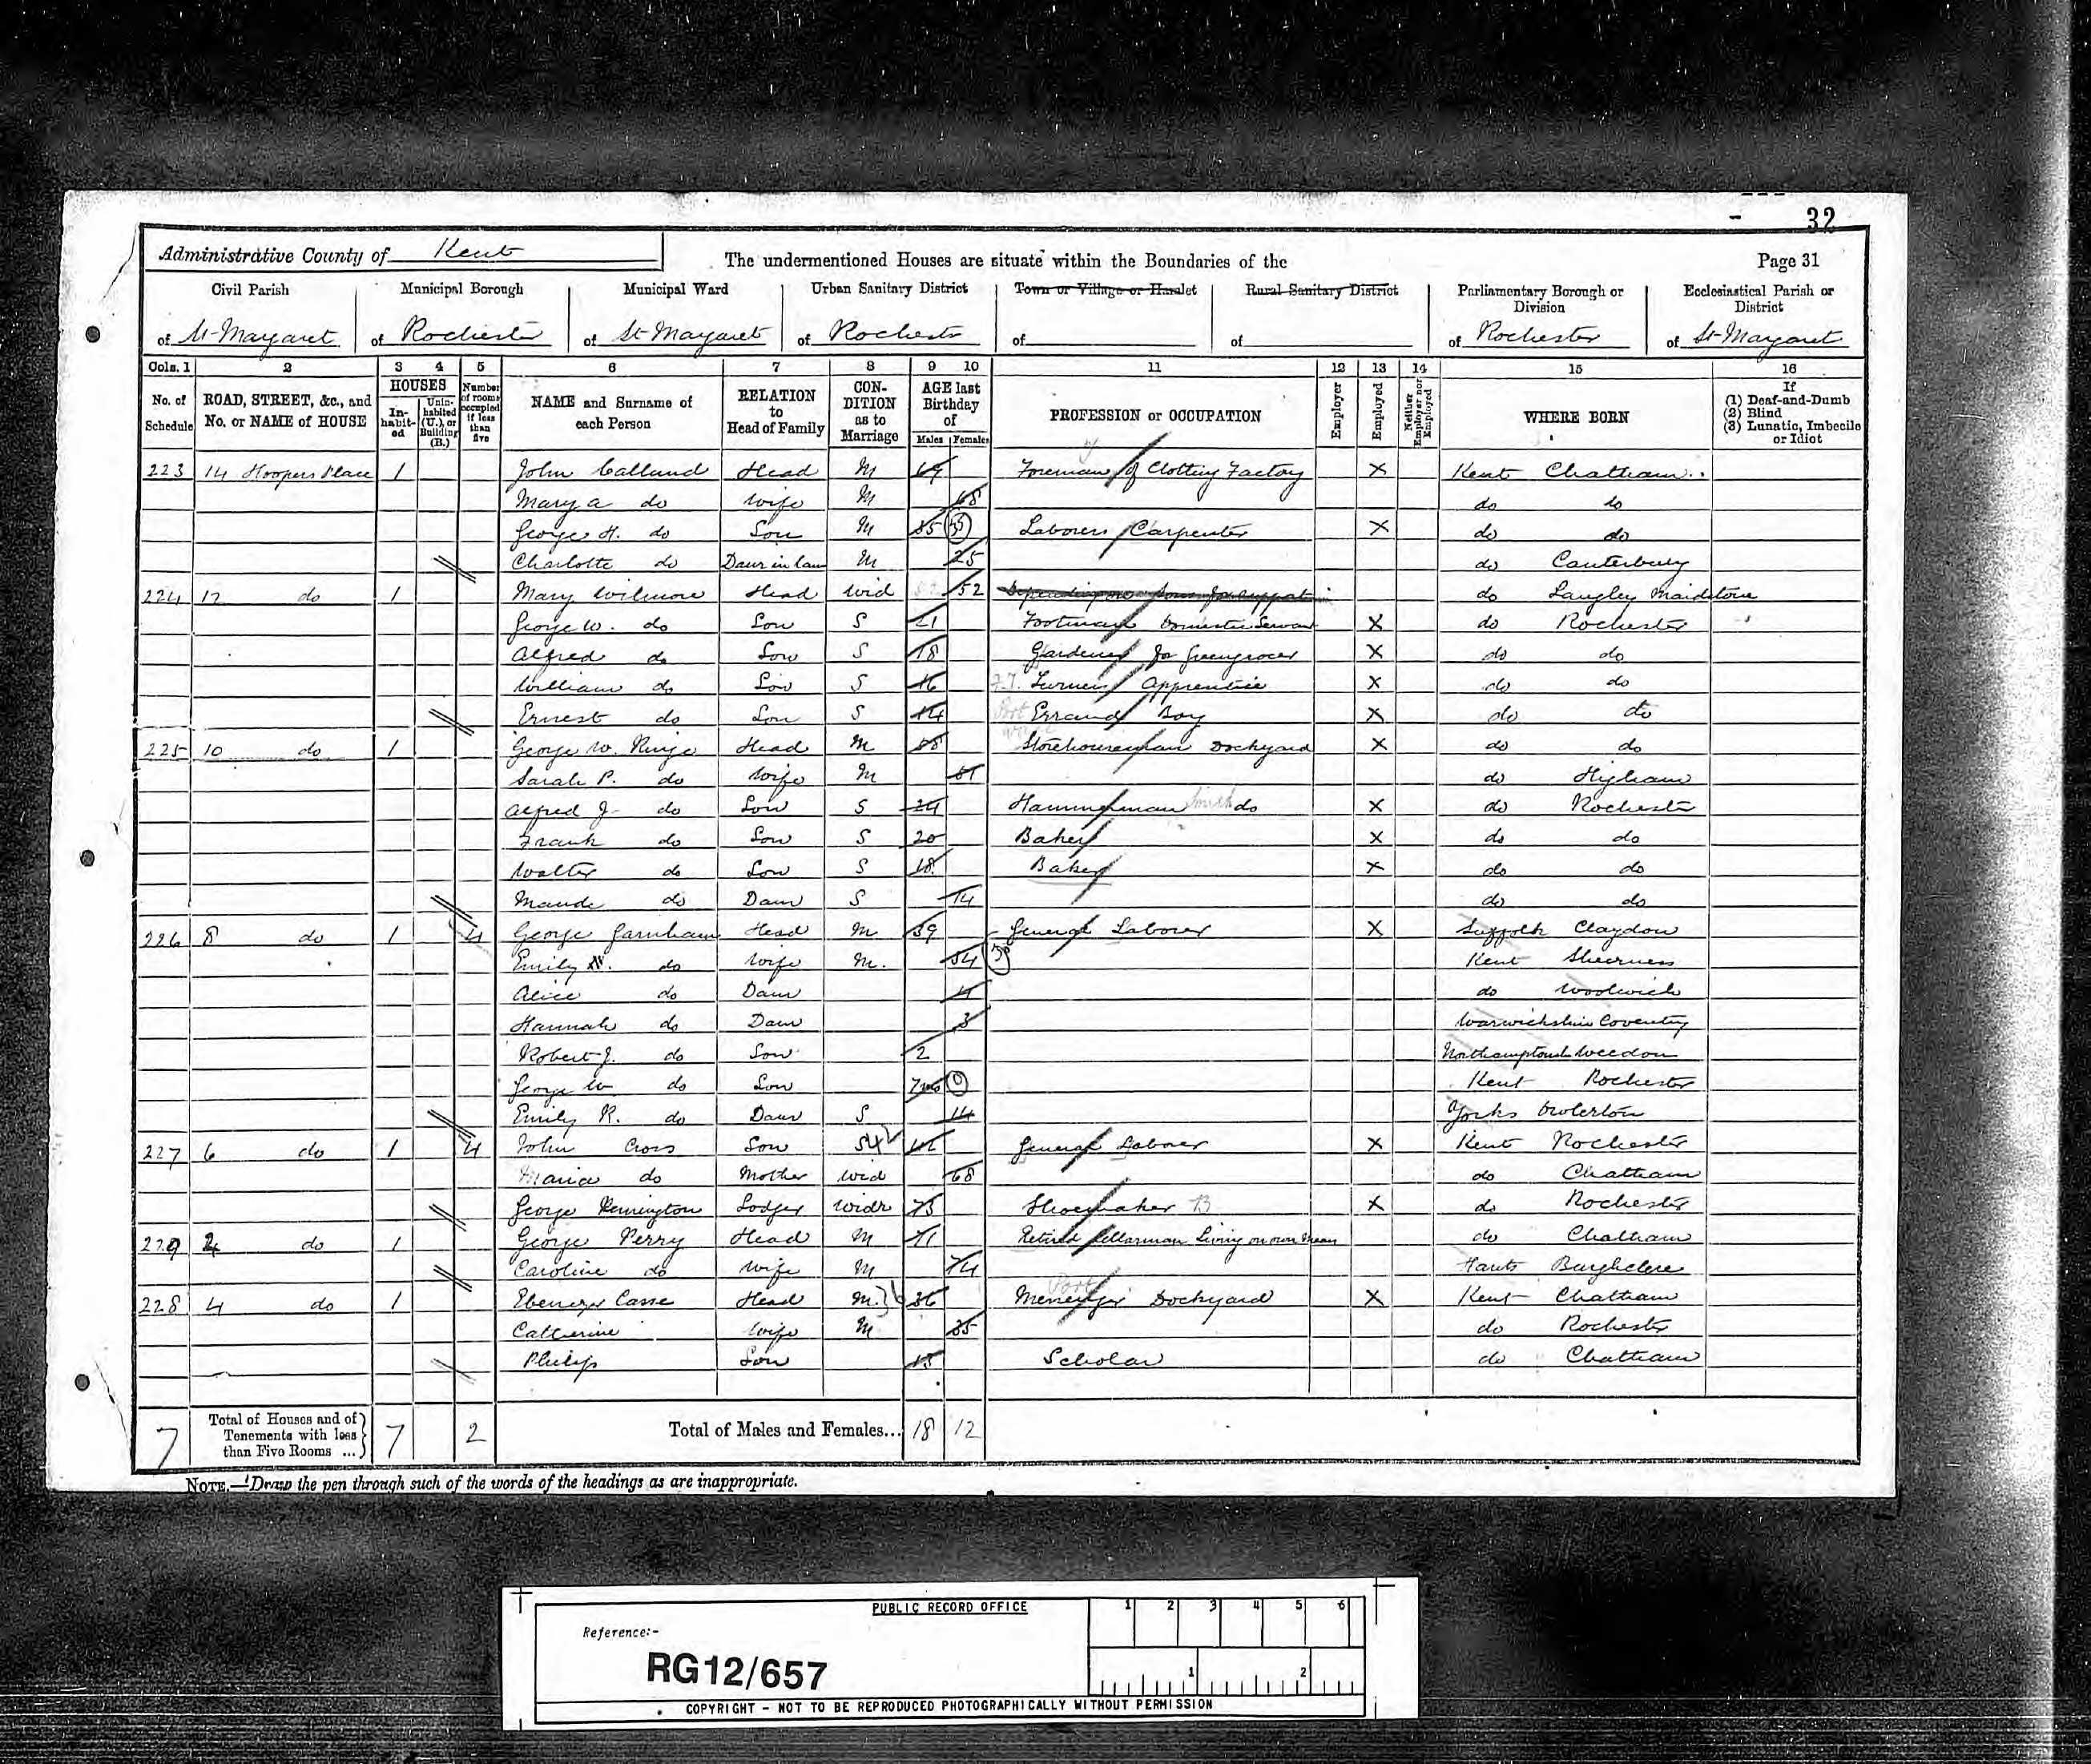 32
Administrative County of Kent
The undermentioned Houses are situate within the Boundaries of the
Page 31
Civil Parish
Municipal Borough
Municipal Ward
Urban Sanitary District
Town or Village or Hamlet
Rural Sanitary District
Parliamentary Borough or Division
Ecclesiastical Parish or District
of St Margaret
of Rochester
of St Margaret
of Rochester
of
of
of Rochester
of St Margaret
Cols. 1 2 3 4 5 6 7 8 9 10 11 12 13 14 15 16
No. of Schedule
ROAD, STREET, &c., and No. or NAME of HOUSE
HOUSES
In-habit-ed
Unin-habited (U.), or Building (B.)
Number of rooms occupied if less than five
NAME and Surname of each Person
RELATION to Head of Family
CON-DITION as to Marriage
AGE last Birthday of
Males Females
PROFESSION or OCCUPATION
Employer
Employed
Neither Employer nor Employed
WHERE BORN
If
(1) Deaf-and-Dumb
(2) Blind
(3) Lunatic, Imbecile or Idiot
223 14 Hoopers Place 1 John Calland Head M 69 Foreman of Clothing Factory X Kent Chatham
Mary A do Wife M 68 do do
George H. do Son M 35 35 Laborers Carpenter X do do
Charlotte do Daur in law M 25 do Canterbury
224 12 do 1 Mary Wilmore Head Wid 52 do Langley Maidstone
George W. do Son S 21 Footman Domestic Servant X do Rochester
Alfred do Son S 18 Gardener for Greengrocer X do do
William do Son S 16 Turners Apprentice X do do
Ernest do Son S 14 Errand Boy X do do
225 10 do 1 George W. Head M 58 Storehouseman Dockyard X do do
Sarah P. do Wife M 51 do Higham
Alfred J do Son S 24 Hammerman Smith do X do Rochester
Frank do Son S 20 Baker X do do
Walter do Son S 18 Baker X do do
Maude do Daur S 14 do do
226 8 do 1 4 George Garnham Head M 39 General Laborer X Suffolk Claydon
Emily do Wife M. 34 Kent Sheerness
Alice do Daur 4 do Woolwich
Hannah do Daur 3 Warwickshire Coventry
Robert J. do Son 2 Weedon
George W do Son 7mo 0 Kent Rochester
Emily R. do Daur S 14 Yorks
227 6 do 1 4 John Cross Son S 42 General Laborer X Kent Rochester
Maria do Mother Wid 68 do Chatham
George Lodger Widr 75 Shoemaker X do Rochester
229 2 do 1 George Perry Head M 71 Retired Cellarman Living on own Mean do Chatham
Caroline do Wife M 74 Hants Burghclere
228 4 do 1 Ebenezer Casse Head M. 36 36 Messenger Dockyard X Kent Chatham
Catherine Wife M 35 do Rochester
Philip Son 15 Scholar do Chatham
7 Total of Houses and of Tenements with less than Five Rooms ... 7 2 Total of Males and Females... 18 12
NOTE.—Draw the pen through such of the words of the headings as are inappropriate.
PUBLIC RECORD OFFICE
1 2 3 4 5 6
Reference:-
RG12/657
1 2
COPYRIGHT - NOT TO BE REPRODUCED PHOTOGRAPHICALLY WITHOUT PERMISSION